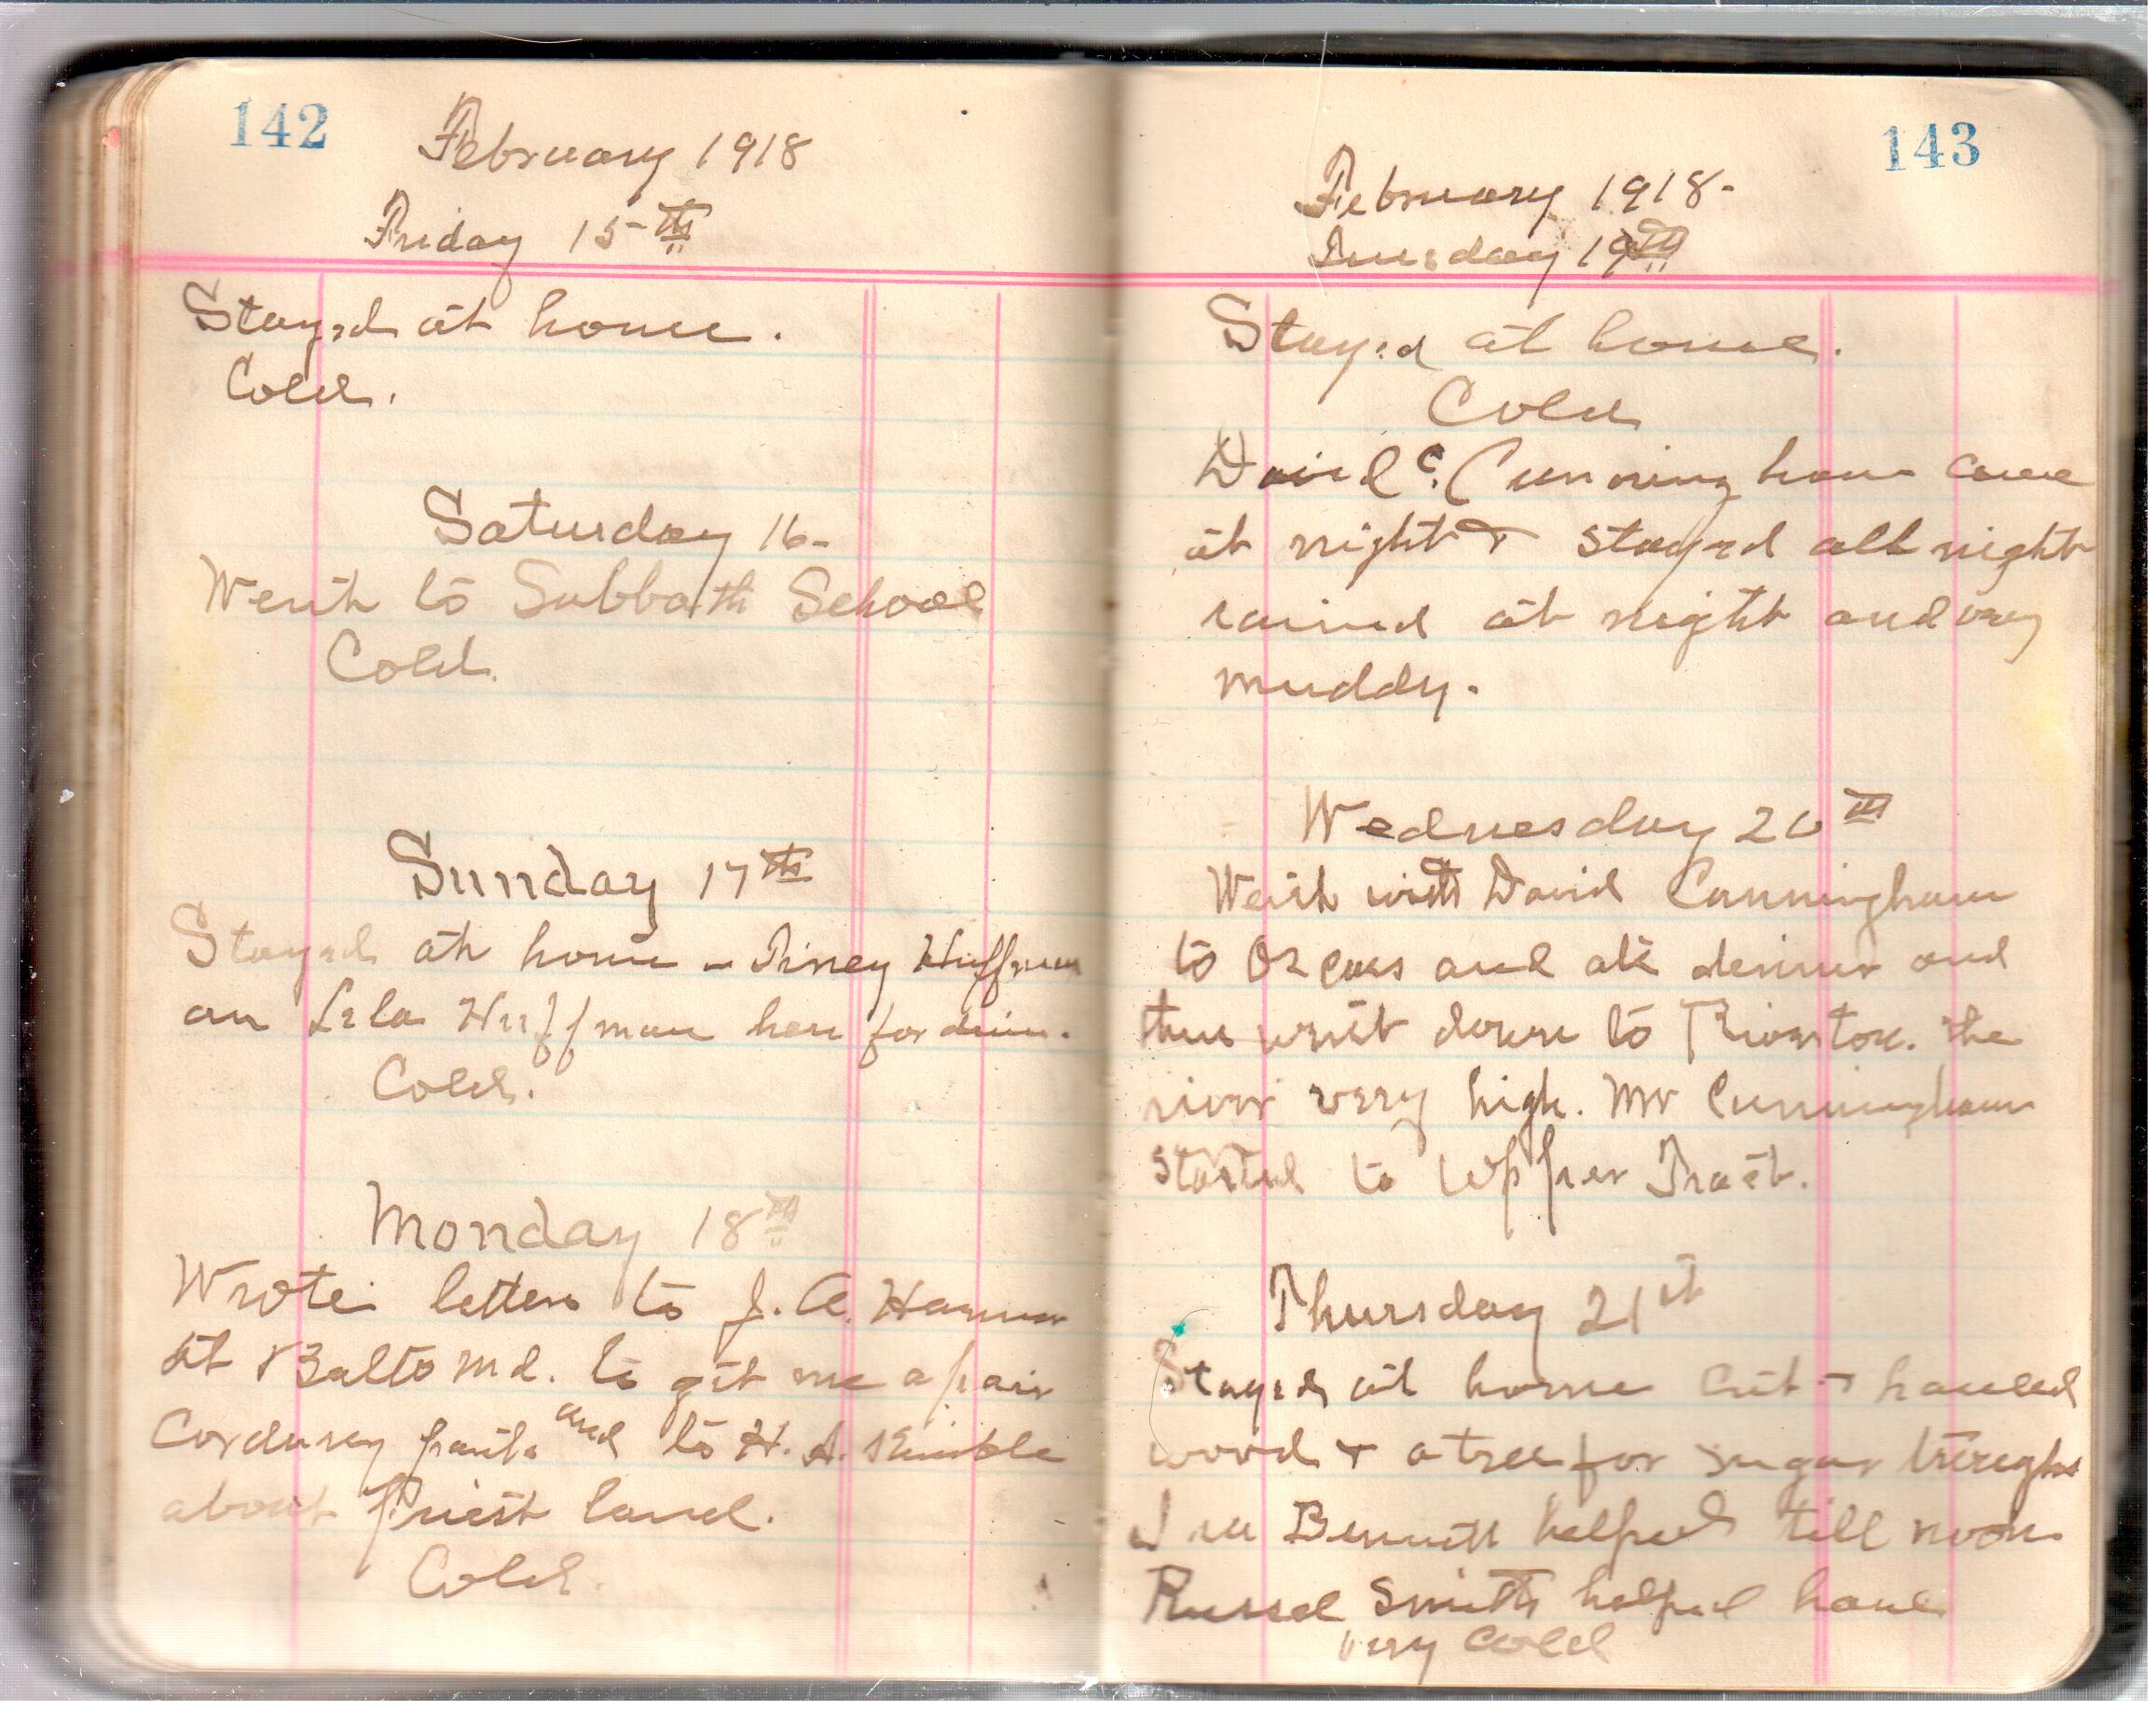 142
February 1918
Friday 15th
Stayed at home.
Cold.
Saturday 16-
Went to Sabbath School
Cold.
Sunday 17th
Stayed at home - Piney Huffman
an Lela Huffman here for dinn.
Cold.
Monday 18th
Wrote letters to J. A. Harman
at Balto Md. to git me a pair
Corduroy pants and to H. A. Kimble
about Priest land.
Cold.
143
February 1918-
Tuesday 19th
Stayed at home.
Cold
David C. Cunningham came
at night & stayed all night
rained at night and very
muddy.
Wednesday 20th
Went with David Cunningham
to Oscars and ate dinner and
then went down to Riverton. the
river very high. Mr Cunningham
started to Upper Tract.
Thursday 21st
Stayed at home cut & hauled
wood & a tree for sugar troughs
Ira Bennett helped till noon
Russel Smith helped haul
very cold